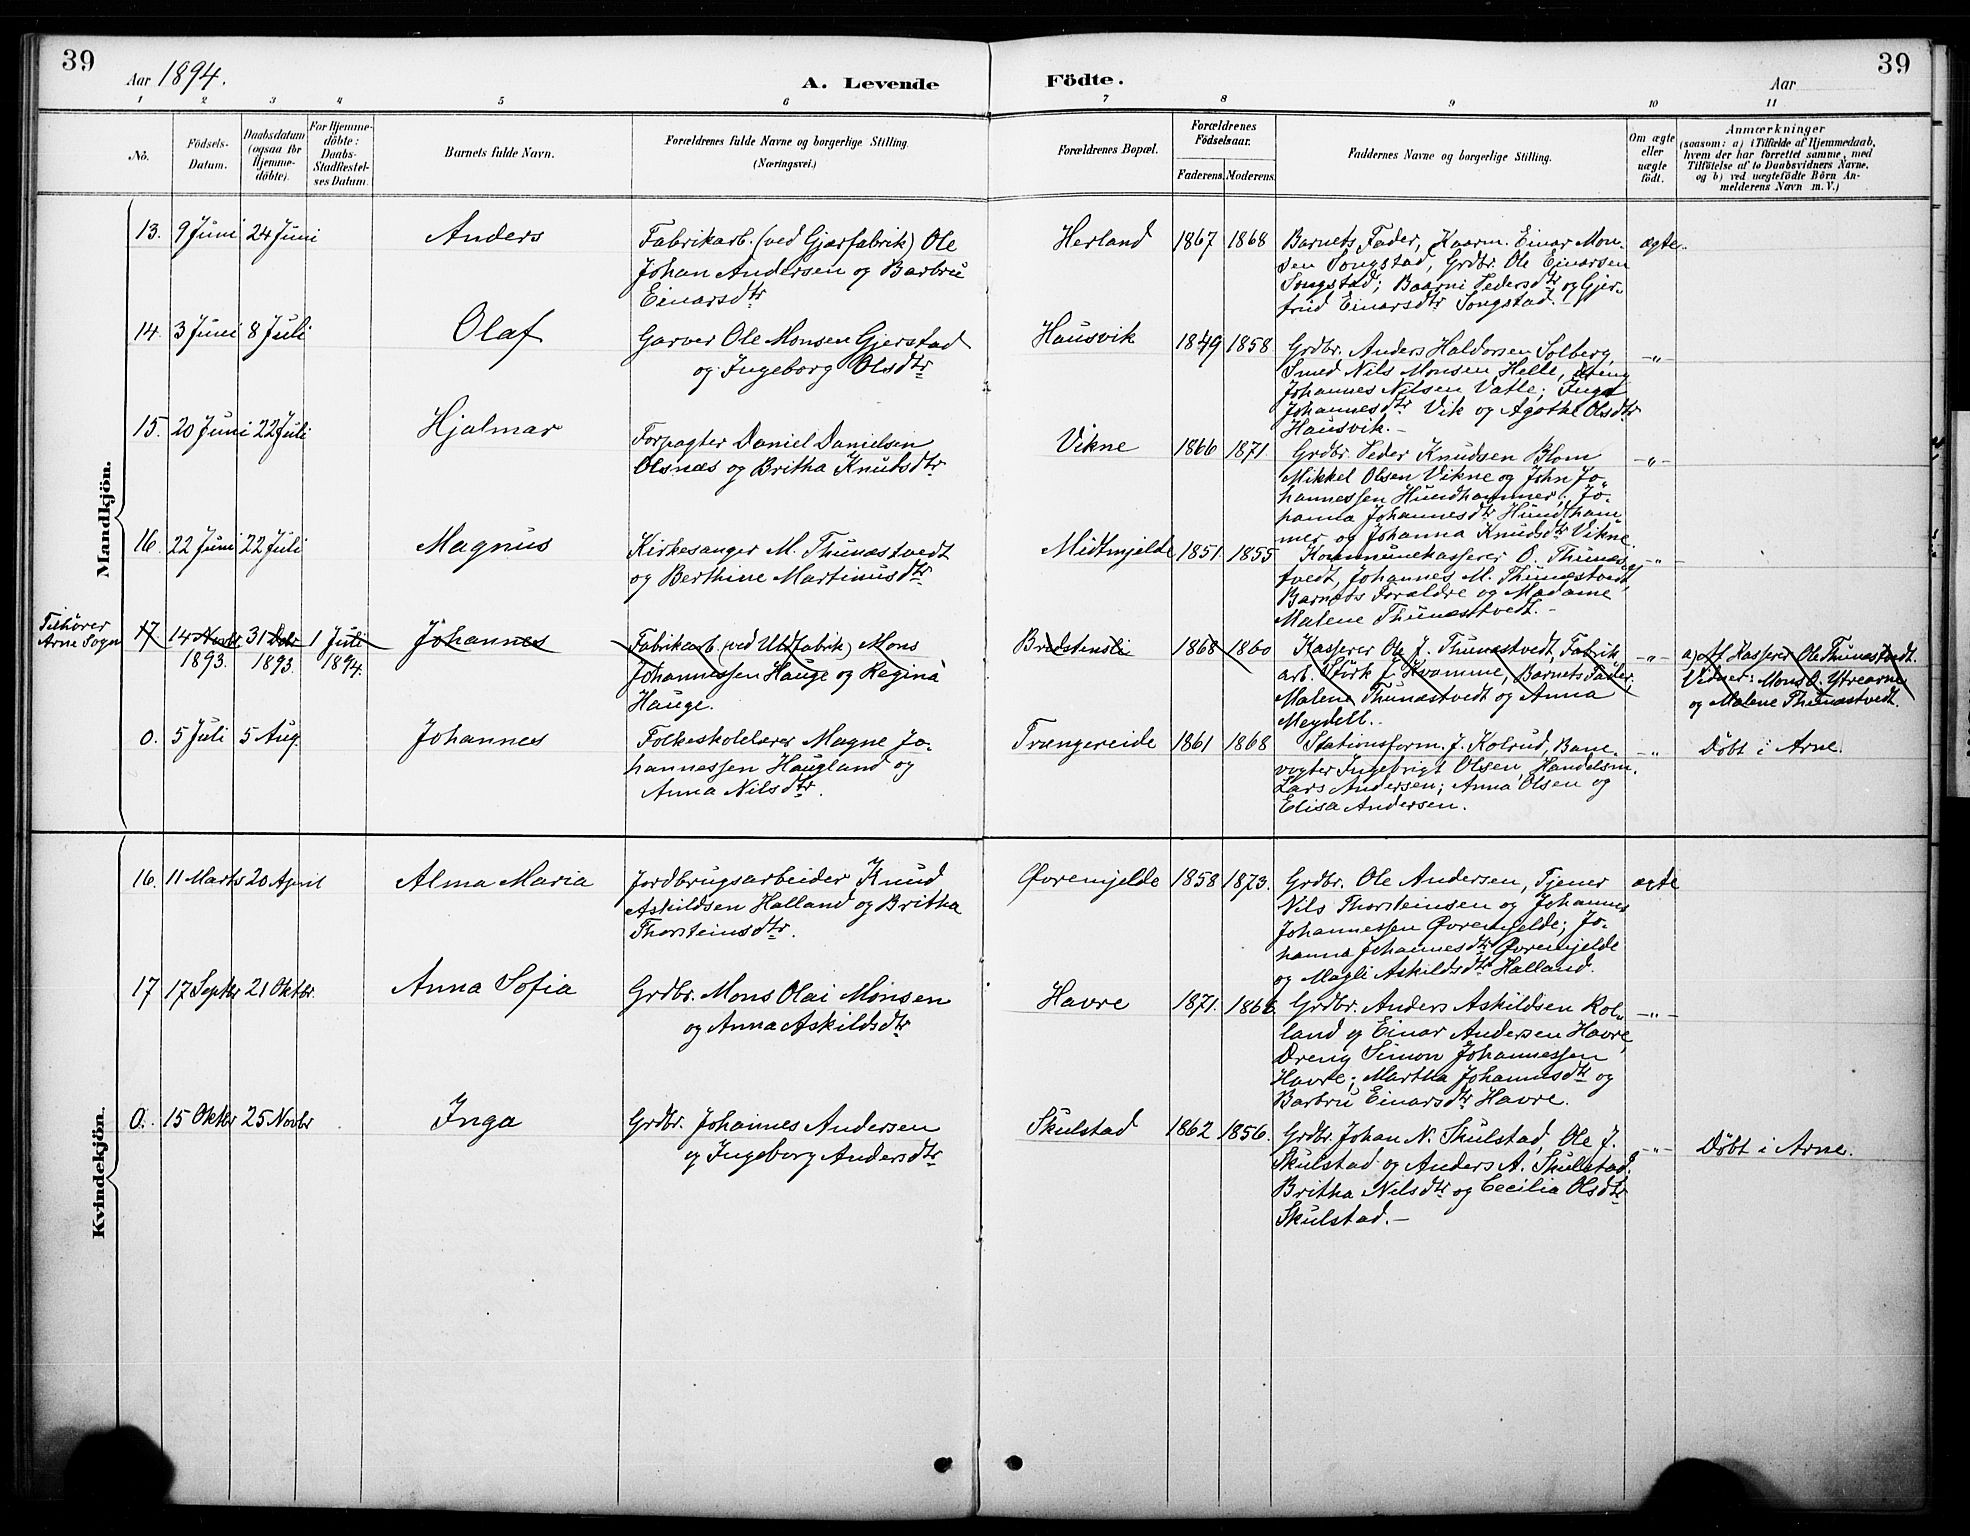 39
Aar 1894.
A. Levende
Födte.
Aar
39
1 2 3 4 5 6 7 8 9 10 11
No.
Födsels-
Datum.
Daabsdatum
(ogsaa for
Hjemme-
döbte).
For Hjemme-
döbte:
Daabs-
Stadfæstel-
ses Datum.
Barnets fulde Navn.
Forældrenes fulde Navne og borgerlige Stilling.
(Næringsvei.)
Forældrenes Bopæl.
Forældrenes
Födselsaar.
Faderens. Moderens.
Faddernes Navne og borgerlige Stilling.
Om ægte
eller
uægte
födt.
Anmærkninger
(saasom: a) i Tilfælde af Hjemmedaab,
hvem der har forrettet samme, med
Tilföielse af to Daabsvidners Navne.
og b) ved uægtefödte Börn An-
melderens Navn m. V.)
Mandkjön.
13. 9 Juni 24 Juni
Anders
Fabrikarb. (ved Gjærfabrik) Ole
Johan Andersen og Barbru
Einarsdtr
Herland 1867 1868
Barnets Fader, Kaarm. Einar Mon-
sen Songstad, Grdbr. Ole Einarsen
Songstad; Baarni Pedersdtr og Gjer-
trud Einarsdtr Songstad.-
ægte.
14. 3 Juni 8 Juli
Olaf
Garver Ole Monsen Gjerstad
og Ingeborg Olsdtr
Hausvik 1849 1858
Grdbr. Anders Haldorsen Solberg,
Smed Nils Monsen Helle, Dreng
Johannes Nilsen Vatle; Inga
Johannesdtr Vik og Agothe Olsdtr
Hausvik.-
-"-
15. 20 Juni 22 Juli
Hjalmar
Forpagter Daniel Danielsen
Olsnæs og Britha Knutsdtr
Vikne 1866 1871
Grdbr. Peder Knudsen Blom
Mikkel Olsen Vikne og John Jo-
hannessen Hundhammer; Jo-
hanna Johannesdtr Hundham-
mer og Johanna Knudsdtr Vikne
-"-
16. 22 Juni 22 Juli
Magnus
Kirkesanger M. Thunestvedt
og Berthine Martinusdtr
Midtmjelde 1851. 1855
Kommunekasserer O. Thunes-
tvedt, Johannes M. Thunestvedt,
Barnets Forældre og Madame
Malene Thunæstvedt.-
-"-
Tilhører
Arne Sogn
17. 14 Novbr 31 Dcbr 1 Juli
1893. 1893. 1894.
Johannes
Fabrikarb. (ved Uldfabrik) Mons
Johannessen Hauge og Regina
Hauge.
Bredstensli 1868 1860
Kasserer Ole J. Thunæstvedt, Fabrik-
arb. Størk J. Kvamme, Barnets Fader;
Malene Thunæstvedt og Anna
Meydell.
-"-
a) Af Kasserer Ole Thunæstvedt.
Vidner: Mons O. Ytrearne
og Malene Thunæstvedt.
0. 5 Juli 5 Aug.
Johannes
Folkeskolelærer Magne Jo-
hannessen Haugland og
Anna Nilsdtr.
Trængereide 1861 1868
Stationsform. J. Kolrud, Bane-
vogter Ingebrigt Olsen, Handelsm.
Lars Andersen; Anna Olsen og
Elisa Andersen.
-"-
Döbt i Arne.
Kvindekjön.
16. 11 Marts 20 April
Alma Maria
Jordbrugsarbeider Knud
Askildsen Halland og Britha
Thorsteinsdtr.
Øvremjelde 1858 1873.
Grdbr. Ole Andersen, Tjener
Nils Thorsteinsen og Johannes
Johannessen Øvremjelde; Jo-
hanna Johannesdtr Øvremjelde
og Magli Askildsdtr Halland.
ægte
17 17 Septbr 21 Oktbr.
Anna Sofia
Grdbr. Mons Olai Monsen
og Anna Askildsdtr
Havre 1871. 1868.
Grdbr. Anders Askildsen Rol-
land og Einar Andersen Havre,
Dreng Simon Johannessen
Havre; Martha Johannesdtr og
Barbru Einarsdtr Havre.
-"-
0. 15 Oktbr 25 Novbr
Inga
Grdbr. Johannes Andersen
og Ingeborg Andersdtr
Skulstad 1862 1856.
Grdbr. Johan N. Skulstad, Ole J.
Skulstad og Anders A. Skulstad;
Britha Nilsdtr og Cecilia Olsdtr
Skulstad.-
-"-
Döbt i Arne.